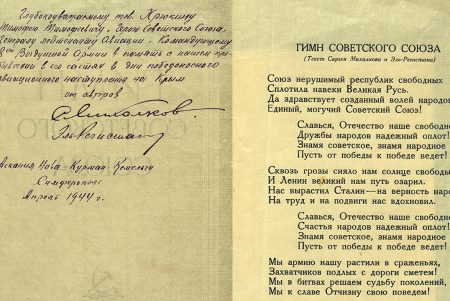 Глубокоуважаемому тов. Хрюкину
Тимофею Тимофеевичу, Герою Советского Союза,
Генералу лейтенанту Авиации, Командующему
8ой Воздушной Армии в память о нашем пре-
бывании в его частях в дни победоносного
авиационного наступления на Крым
от авторов
С Михалков
Эль-Регистан
Аскания Нова – Курман-Кемельчи
Симферополь
Апрель 1944 г.
ГИМН СОВЕТСКОГО СОЮЗА
(Текст Сергея Михалкова и Эль-Регистана)
Союз нерушимый республик свободных
Сплотила навеки Великая Русь.
Да здравствует созданный волей народов
Единый, могучий Советский Союз!
Славься, Отечество наше свободно
Дружбы народов надежный оплот!
Знамя советское, знамя народное
Пусть от победы к победе ведет!
Сквозь грозы сияло нам солнце свободы
И Ленин великий нам путь озарил.
Нас вырастил Сталин—на верность наро
На труд и на подвиги нас вдохновил.
Славься, Отечество наше свободно
Счастья народов надежный оплот!
Знамя советское, знамя народное
Пусть от победы к победе ведет!
Мы армию нашу растили в сраженьях,
Захватчиков подлых с дороги сметем!
Мы в битвах решаем судьбу поколений,
Мы к славе Отчизну свою поведем!